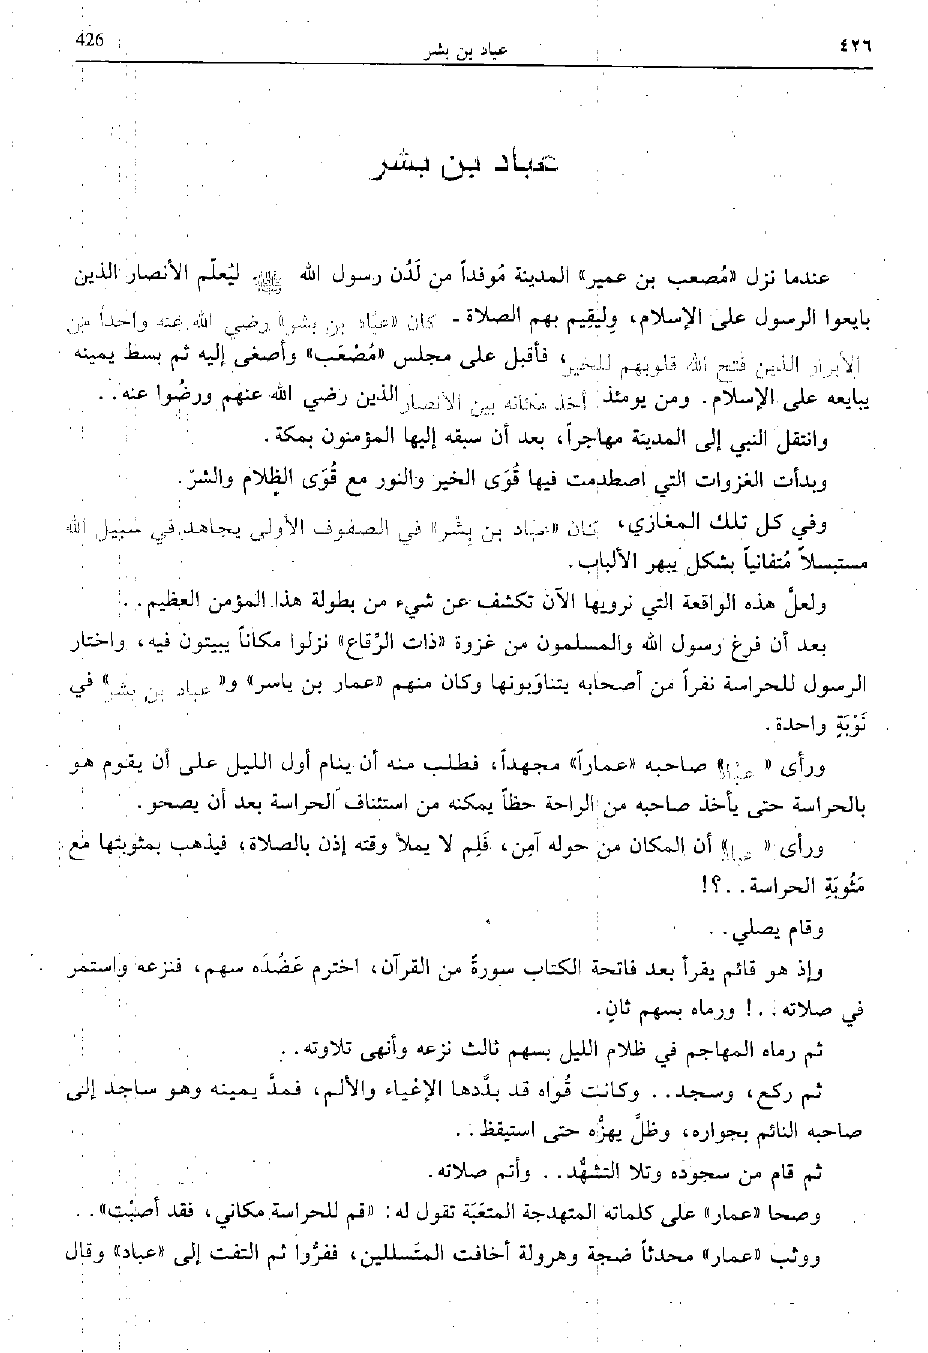 ٤٢٦ عباد بن بشر 426
عباد بن بشر
عندما نزل «مُصعب بن عمير» المدينة مُوفداً من لَدُن رسول الله ﷺ ليُعلّم الأنصار الذين
بايعوا الرسول على الإسلام، وليُقيم بهم الصلاة - كان «عبّاد بن بشر» رضي الله عنه واحداً من
الأبرار الذين فتح الله قلوبهم للخير، فأقبل على مجلس «مُصْعَب» وأصغى إليه ثم بسط يمينه
يبايعه على الإسلام. ومن يومئذ أخذ مكانه بين الأنصار الذين رضي الله عنهم ورضُوا عنه..
وانتقل النبي إلى المدينة مهاجراً، بعد أن سبقه إليها المؤمنون بمكة.
وبدأت الغزوات التي اصطدمت فيها قُوَى الخير والنور مع قُوَى الظلام والشرّ.
وفي كل تلك المغازي، كان «عباد بن بِشْر» في الصفوف الأولى يجاهد في سبيل الله
مستبسلاً مُتفانياً بشكل يبهر الألباب.
ولعلَّ هذه الواقعة التي نرويها الآن تكشف عن شيء من بطولة هذا المؤمن العظيم..
بعد أن فرغ رسول الله والمسلمون من غزوة «ذات الرِّقاع» نزلوا مكاناً يبيتون فيه، واختار
الرسول للحراسة نفراً من أصحابه يتناوَبونها وكان منهم «عمار بن ياسر» و« عباد بن بشر» في
نَوْبَةٍ واحدة.
ورأى « عباد» صاحبه «عماراً» مجهداً، فطلب منه أن ينام أول الليل على أن يقوم هو
بالحراسة حتى يأخذ صاحبه من الراحة حظاً يمكنه من استئناف الحراسة بعد أن يصحو.
ورأى « عباد» أن المكان من حوله آمِن، فَلِم لا يملأ وقته إذن بالصلاة، فيذهب بمثوبتها مع
مَثُوبَةِ الحراسة..؟!
وقام يصلي..
وإذ هو قائم يقرأ بعد فاتحة الكتاب سورةً من القرآن، اخترم عَضُدَه سهم، فنزعه واستمر
في صلاته..! ورماه بسهم ثانٍ.
ثم رماه المهاجم في ظلام الليل بسهم ثالث نزعه وأنهى تلاوته..
ثم ركع، وسجد.. وكانت قُواه قد بدَّدها الإغياء والألم، فمدَّ يمينه وهو ساجد إلى
صاحبه النائم بجواره، وظلَّ يهزُّه حتى استيقظ..
ثم قام من سجوده وتلا التشهُّد.. وأتم صلاته.
وصحا «عمار» على كلماته المتهدجة المتعَبَة تقول له: «قم للحراسة مكاني، فقد أُصبْت»..
ووثب «عمار» محدثاً ضجة وهرولة أخافت المتَسللين، ففرُّوا ثم التفت إلى «عباد» وقال